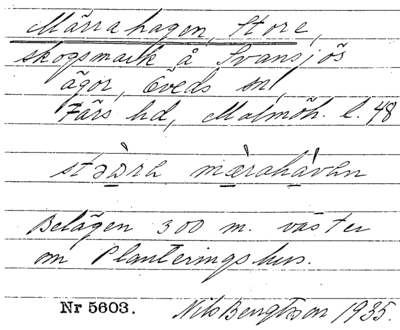 Märrahagen, Store,
skogsmark å Svansjös
ägor, Öveds sn,
Färs hd, Malmöh. l. 48
Belägen 300 m. väster
om Planteringshus.
Nr 5603. Nils Bengtsson 1935.